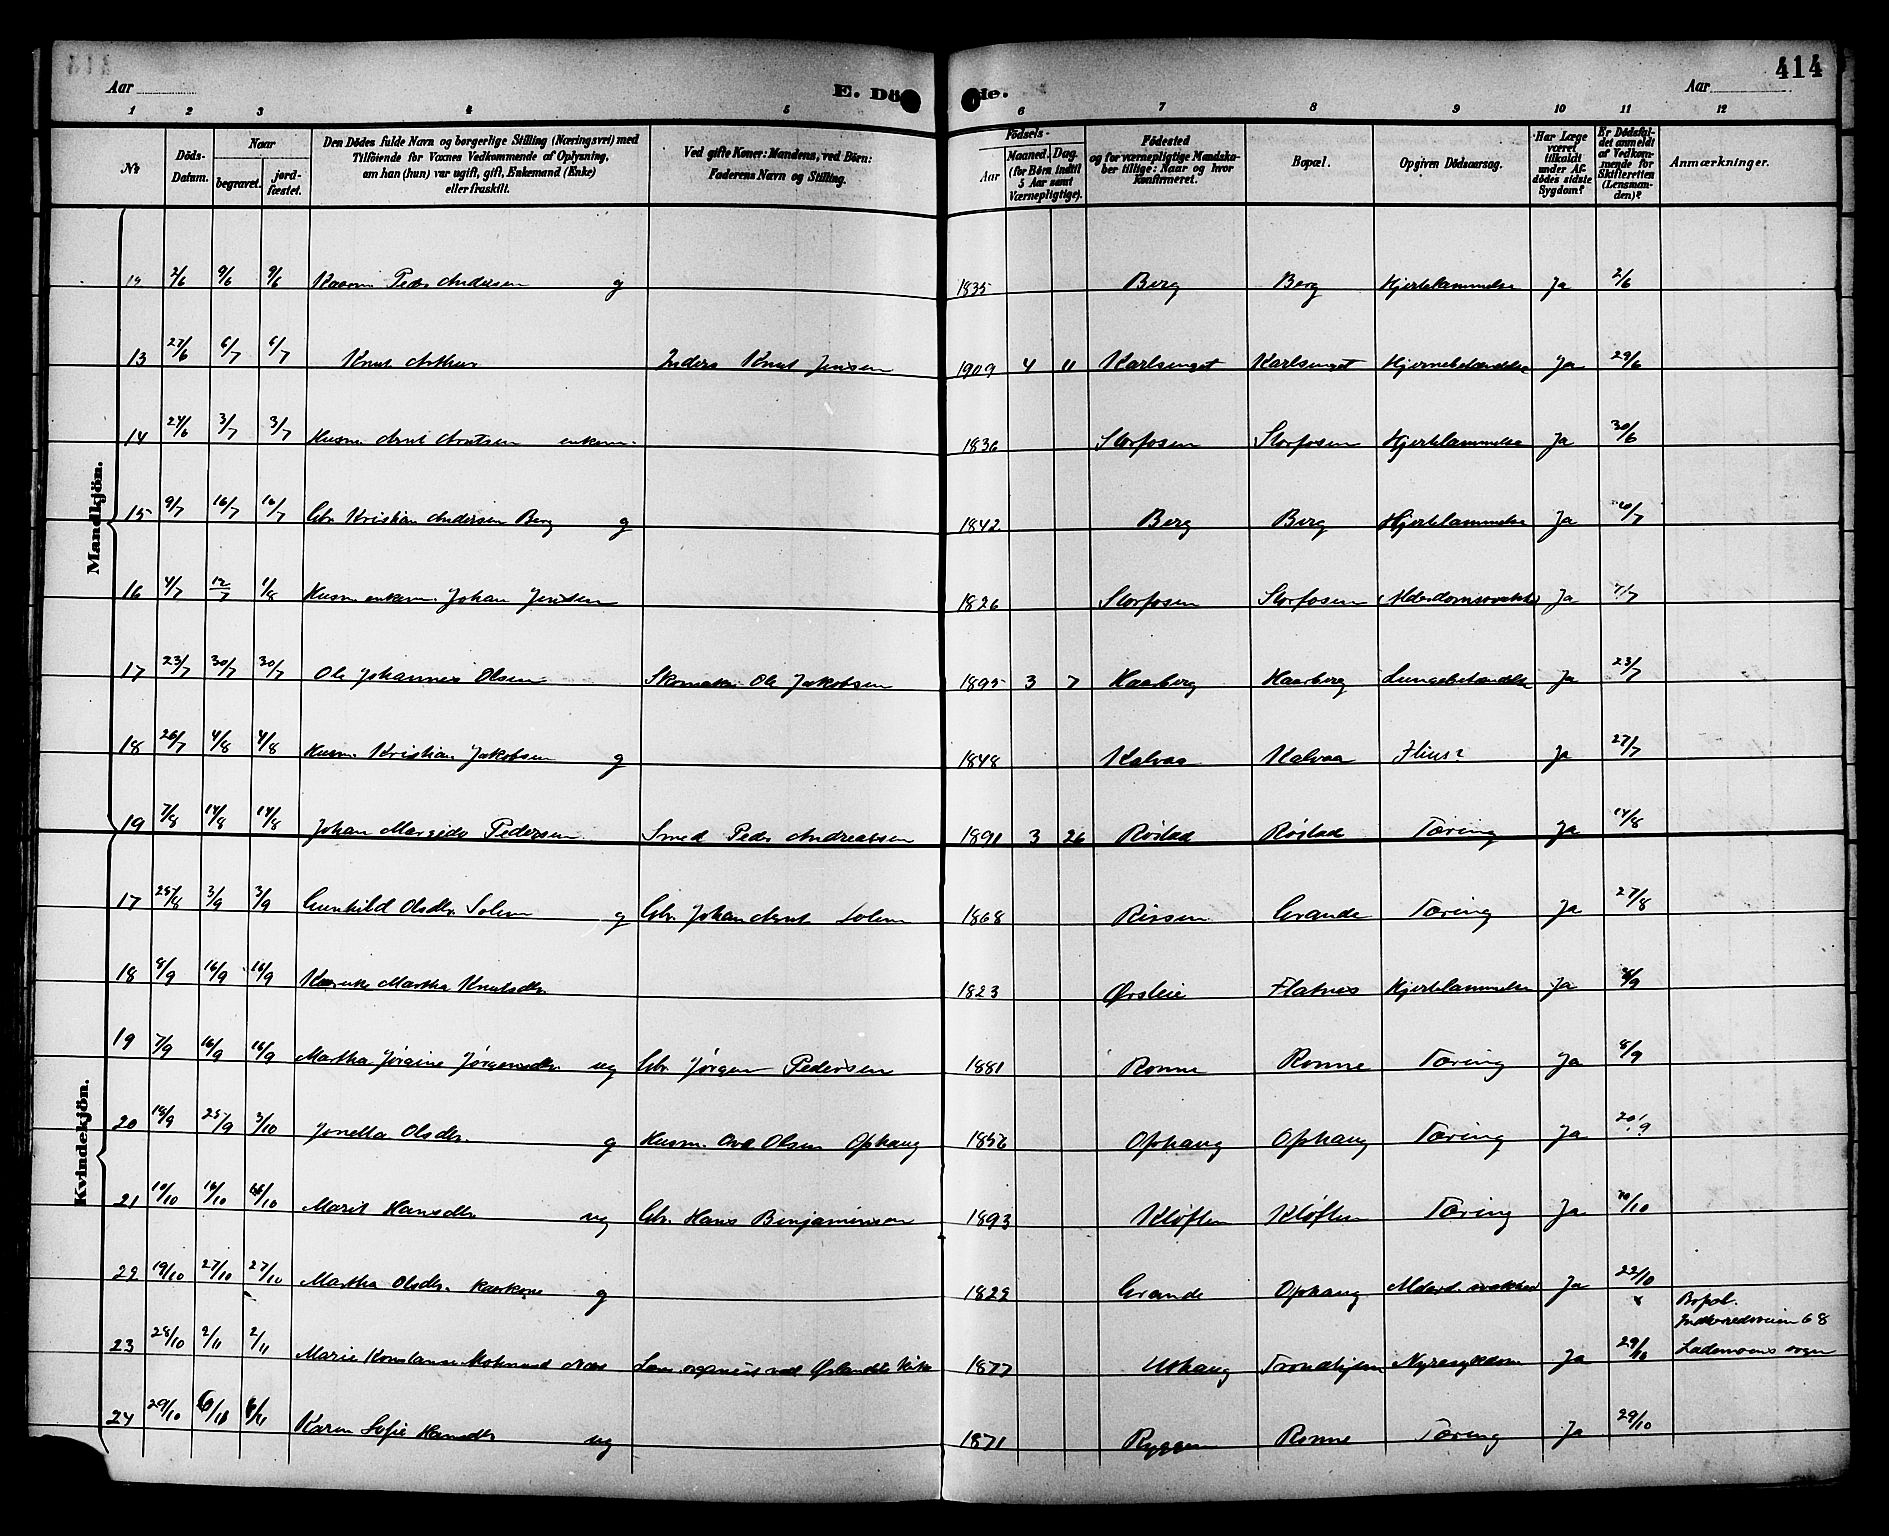 414
Aar
E. Döde.
Aar
1 2 3 4 5 6 7 8 9 10 11 12
No
Döds-Datum.
Naar
begravet.
jord-fæstet.
Den Dödes fulde Navn og borgerlige Stilling (Næringsvei) med
Tilföiende for Voxnes Vedkommende af Oplysning,
om han (hun) var ugift, gift, Enkemand (Enke)
eller fraskilt.
Ved gifte Koner: Mandens, ved Börn:
Faderens Navn og Stilling.
Födsels-
Aar
Maaned. Dag.
(for Börn indtil
5 Aar samt
Værnepligtige).
Födested
og for værnepligtige Mandska-
ber tillige: Naar og hvor
Konfirmeret.
Bopæl.
Opgiven Dödsaarsag.
Har Læge
været
tilkaldt
under Af-
dödes sidste
Sygdom?
Er Dödsfal-
det anmeldt
af Vedkom-
mende for
Skifteretten
(Lensman-
den)?
Anmærkninger.
Mandkjön.
2/6 9/6 9/6 Peder Andersen g 1835 Berg Berg Hjertelammelse Ja 2/6
13 27/6 6/7 6/7 Knut Arthur Inders Knut Jensen 1909 4 11 Karlsenget Karlsenget Hjernebetændelse Ja 29/6
14 24/6 3/7 3/7 Husm. Arnt Arntsen enkem. 1836 Storfosen Storfosen Hjertelammelse Ja 30/6
15 9/7 16/7 16/7 Gbr. Kristian Andersen Berg g 1842 Berg Berg Hjertelammelse Ja 10/7
16 4/7 12/7 1/8 Husm. enkem. Johan Jensen 1826 Storfosen Storfosen Alderdomssvækkel Ja 7/7
17 23/7 30/7 30/7 Ole Johannes Olsen Skomaker Ole Jakobsen 1895 3 7 Haarberg Haarberg Lungebetændelse Ja 23/7
18 26/7 4/8 4/8 Husm. Kristian Jakobsen g 1848 Kalvaa Kalvaa Ja 27/7
19 7/8 14/8 14/8 Johan Margido Pedersen Smed Peder Andreassen 1891 3 26 Røstad Røstad Tæring Ja 14/8
Kvindekjön.
17 25/8 3/9 3/9 Gunhild Olsdtr. Solem g Gbr. Johan Arnt Solem 1868 Rissen Grande Tæring Ja 27/8
18 8/9 16/9 16/9 Martha Knutsdtr. 1823 Ørsleie Flatnes Hjertelammelse Ja 8/9
19 7/9 16/9 16/9 Martha Jørgine Jørgensdtr. ug Gbr. Jørgen Pedersen 1881 Ronne Ronne Tæring Ja 8/9
20 18/9 25/9 3/10 Jonetta Olsdtr. g Husm. Ove Olsen Ophaug 1856 Ophaug Ophaug Tæring Ja 20/9
21 10/10 16/10 16/10 Marit Hansdtr. ug Gbr. Hans Benjaminsen 1893 Kløften Kløften Tæring Ja 10/10
22 19/10 27/10 27/10 Martha Olsdtr. kaarkone g 1829 Grande Ophaug Alderd. svækkel Ja 22/10
Bopæl.
Indherredsveien 68
23 28/10 2/11 2/11 Marie Konstanse 1877 Uthaug Trondhjem Nyresygdom Ja 29/10 Lademoens sogn
24 29/10 6/11 6/11 Karen Sofie Hansdtr. ug 1871 Ryggen Ronne Tæring Ja 29/10